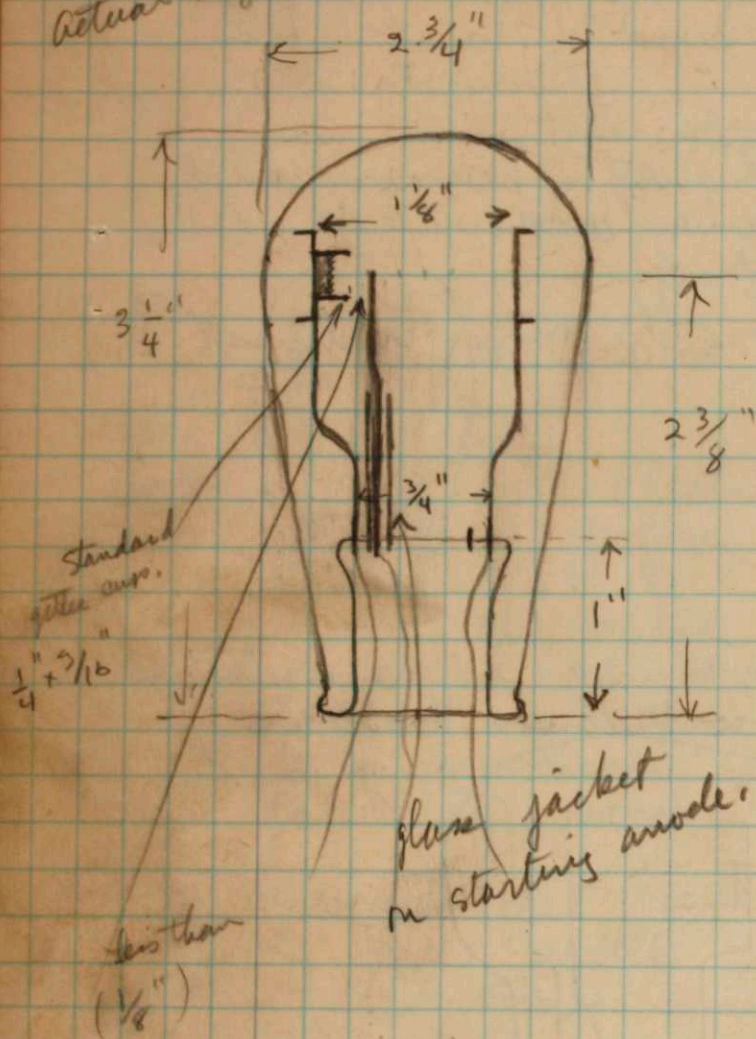 Actual
2 3/4"
1 1/8"
3 1/4"
2 3/8"
3/4"
Standard
getter cup.
1/4" x 3/16"
1"
glass jacket
on starting anode.
less than
(1/8")